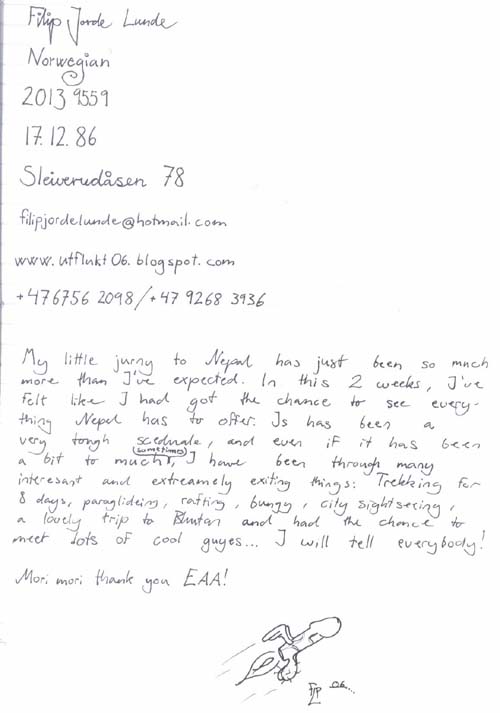 Filip Jorde Lunde
Norwegian
2013 9559
17.12.86
Sleiverudåsen 78
filipjordelunde@hotmail.com
www.utflukt06.blogspot.com
+476756 2098/+47 9268 3936
My little jurny to Nepal has just been so much
more than I've expected. In this 2 weeks, I've
felt like I had got the chance to see every-
thing Nepal has to offer. Is has been a
very tough scedduale, and even if it has been
a bit to much (sometimes), I have been through many
interesant and extreamely exiting things: Trekking for
8 days, paraglideing, rafting, bungy, city sightseeing,
a lovely trip to Bhutan and had the chance to
meet lots of cool guyes... I will tell everybody!
Mori mori thank you EAA!
06...